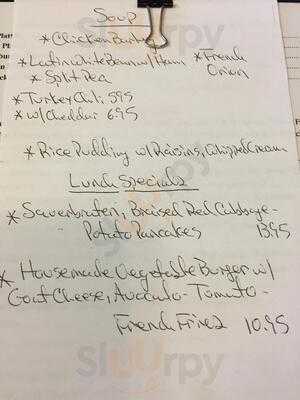 Soup
* Chicken Barley
* Latin White Bean w/ Ham * French Onion
* Split Pea
* Turkey Chili 5.95
* w/ Cheddar 6.95
* Rice Pudding w/ Raisins, Whipped Cream
Lunch Specials
* Sauerbraten, Braised Red Cabbage -
Potato Pancakes 13.95
* Housemade Vegetable Burger w/
Goat Cheese, Avocado - Tomato -
French Fries 10.95
Sluurpy